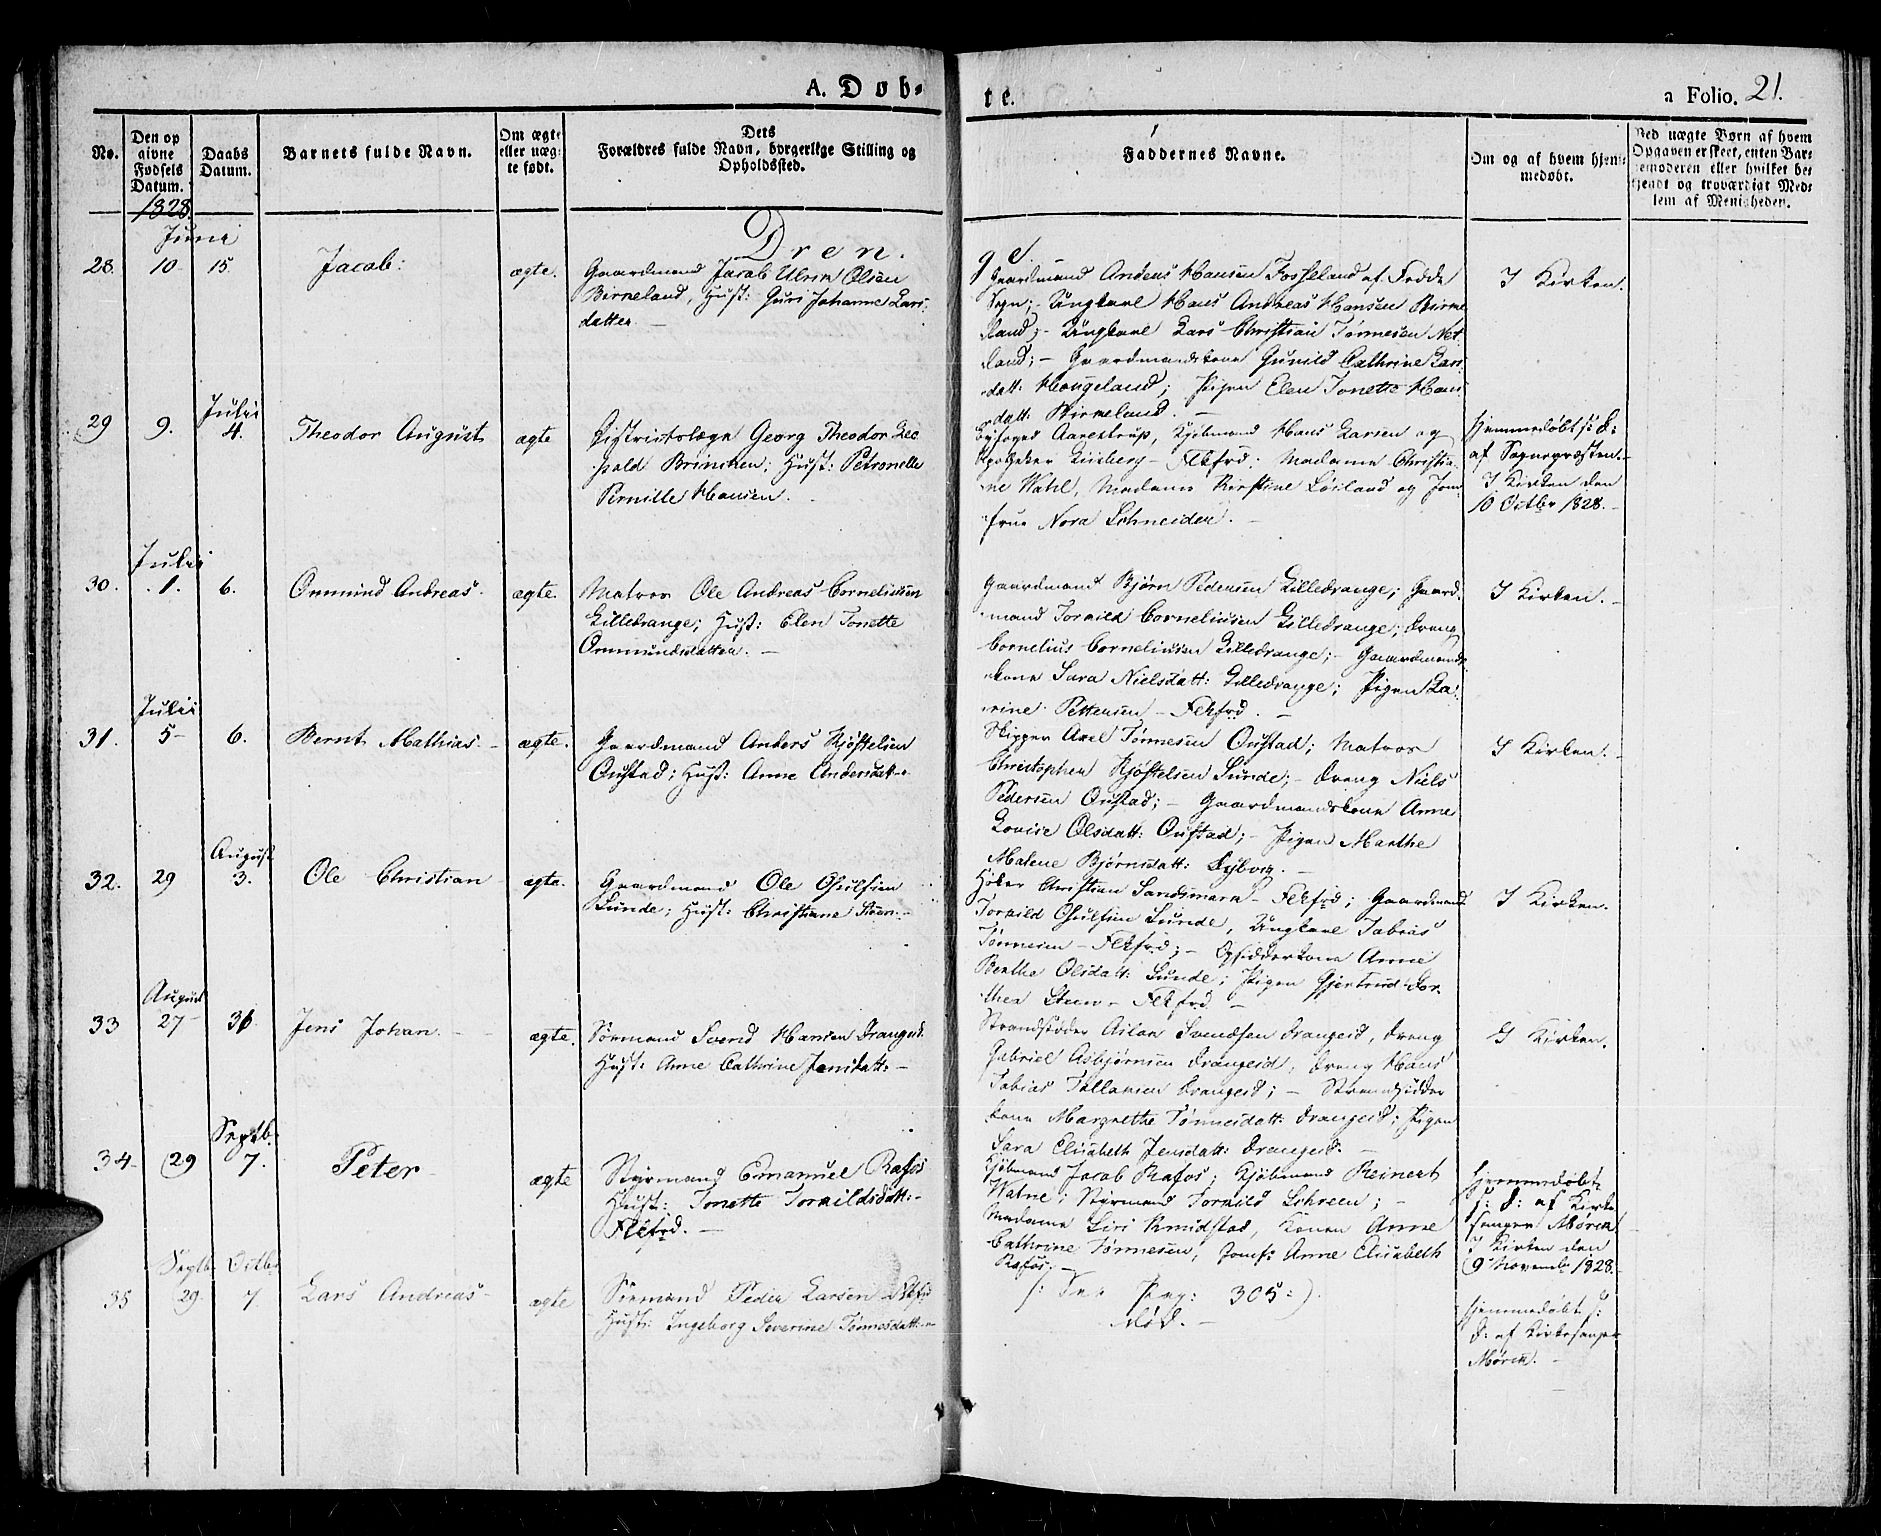 A. Døb-
te.
a Folio. 21.
No.
Den op
givne
Fødsels
Datum.
Daabs
Datum.
Barnets fulde Navn.
Om ægte
eller uæg-
te født.
Dets
Forældres fulde Navn, borgerlige Stilling og
Opholdssted.
Faddernes Navne.
Om og af hvem hjem-
medøbt.
Ved uægte Børn af hvem
Opgaven er skeet, enten Bar-
nemoderen eller hvilket be-
kjendt og troværdigt Med-
lem af Menigheden.
1828
Juni
Dren
ge.
28. 10 15. Jacob: ægte.
Gaardmand Jacob Ulrik Olsen
Birkeland, Hust: Guri Johanne Lars-
datter —
Gaardmand Anders Hansen Fosseland af Fedde
Sogn; - Ungkarl Hans Andreas Hansen Birke
land; - Ungkarl Lars Christian Tønnesen Net
land; - Gaardmandskone Gunild Cathrine Lars
datt: Haugeland; Pigen Elen Tonette Hans
datt: Birkeland. —
I Kirken.
29 9. Julii 4. Theodor August ægte
Districtslæge Georg Theodor Leo
pold Brinchen; Hust: Petronelle
Pernille Hansen.
Byfoged Aarestrup, Kjøbmand Hans Larsen og
Apotheker - Flkfrd; Madame Christia
ne Wahl, Madame Kirstine Løiland og Jom
frue Nora Schneider. —
hjemmedøbt s: d:
af Sognepræsten. -
I Kirken den
10 Octbr 1828. -
Julii
30. 1. 6. Ommund Andreas. ægte.
Matros Ole Andreas Corneliusen
Lilledrange; Hust: Elen Tonette
Ommundsdatter. —
Gaardmand Bjørn Pedersen Lilledrange; Gaard-
mand Torkild Corneliusen Lilledrange; Dreng
Cornelius Corneliusen Lilledrange; - Gaardmands
kone Sara Nielsdatt: Lilledrange; Pigen La
rine Pettersen - Flkfrd. —
I Kirken. -
Julii
31. 5 6. Bernt Mathias. - ægte.
Gaardmand Anders Kjøstelsen
Oustad; Hust: Anne Andersdatt -
Skipper Axel Tønnesen Oustad; Matros
Christopher Kjøstelsen Sunde; - Dreng Niels
Pedersen Oustad; - Gaardmandskone Anne
Lovise Olsdatt: Oustad; - Pigen Marthe
Malene Bjørnsdatt: Dybvig. —
I Kirken. -
32. 29 August 3. Ole Christian ægte.
Gaardmand Ole Osulfsen
Sunde; Hust: Christiane Steen. -
Høker Christian Sandsmark - Flkfrd; Gaardmand
Torkild Osulfsen Sunde, Ungkarl Tobias
Tønnesen - Flkfrd; - Opsidderkone Anne
Berthe Olsdatt: Sunde; Pigen Gjertrud Dor-
thea Steen - Flkfrd —
I Kirken.
August
33 27 31 Jens Johan. - ægte.
Sømand Svend Hansen Drangeid.
Hust: Anne Cathrine Jensdatt: -
Strandsidder Svendsen Drangeid, Dreng
Gabriel Asbjørnsen Drangeid, Dreng Hans
Tobias Tollaksen Drangeid; - Strandsidder
kone Margrethe Tønnesdatt: Drangeid; Pigen
Sara Elisabeth Jensdatt: Drangeid. -
I Kirken.
34 29 Septb: 7. Peter ægte
Styrmand Emanuel Rafos
Hust: Tonette Torkildsdatt: -
Flkfrd. —
Kjøbmand Jacob Rafos; Kjøbmand Reinert
Watne; Styrmand Torkild Schreen; -
Madame Siri Knudstad, Konen Anne
Cathrine Tønnesen, Jomf: Anne Elisabeth
Rafos. —
hjemmedøbt
s: d: af Kirke
sanger Mørch
I Kirken den
9 Novemb 1828. -
Septb. Octbr
35 29. 7 Lars Andreas - ægte
Sømand Peder Larsen Flkfrd
Hust: Ingeborg Severine Tønnesdatt: -
/: See Pag: 305 :)
død. —
hjemmedøbt s:
d: af Kirkesanger
Mørch. -